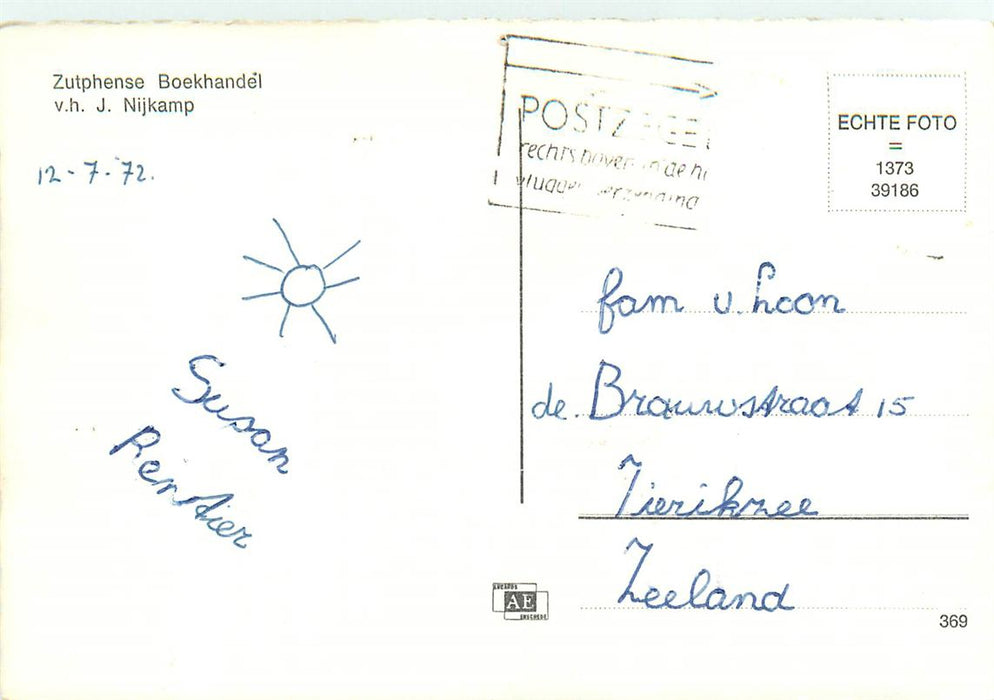 Zutphense Boekhandel
v.h. J. Nijkamp
12-7-'72.
Susan
Rentier
POSTZEGEL
rechts boven in de h
vlugger verzending
ECHTE FOTO
=
1373
39186
fam v. Loon
de. Brouwstraat 15
Zierikzee
Zeeland
AE
ENSCHEDE
369